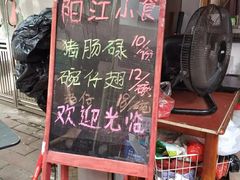 阳江小食
猪肠碌 10/份
碗仔翅 12/碗
欢迎光临